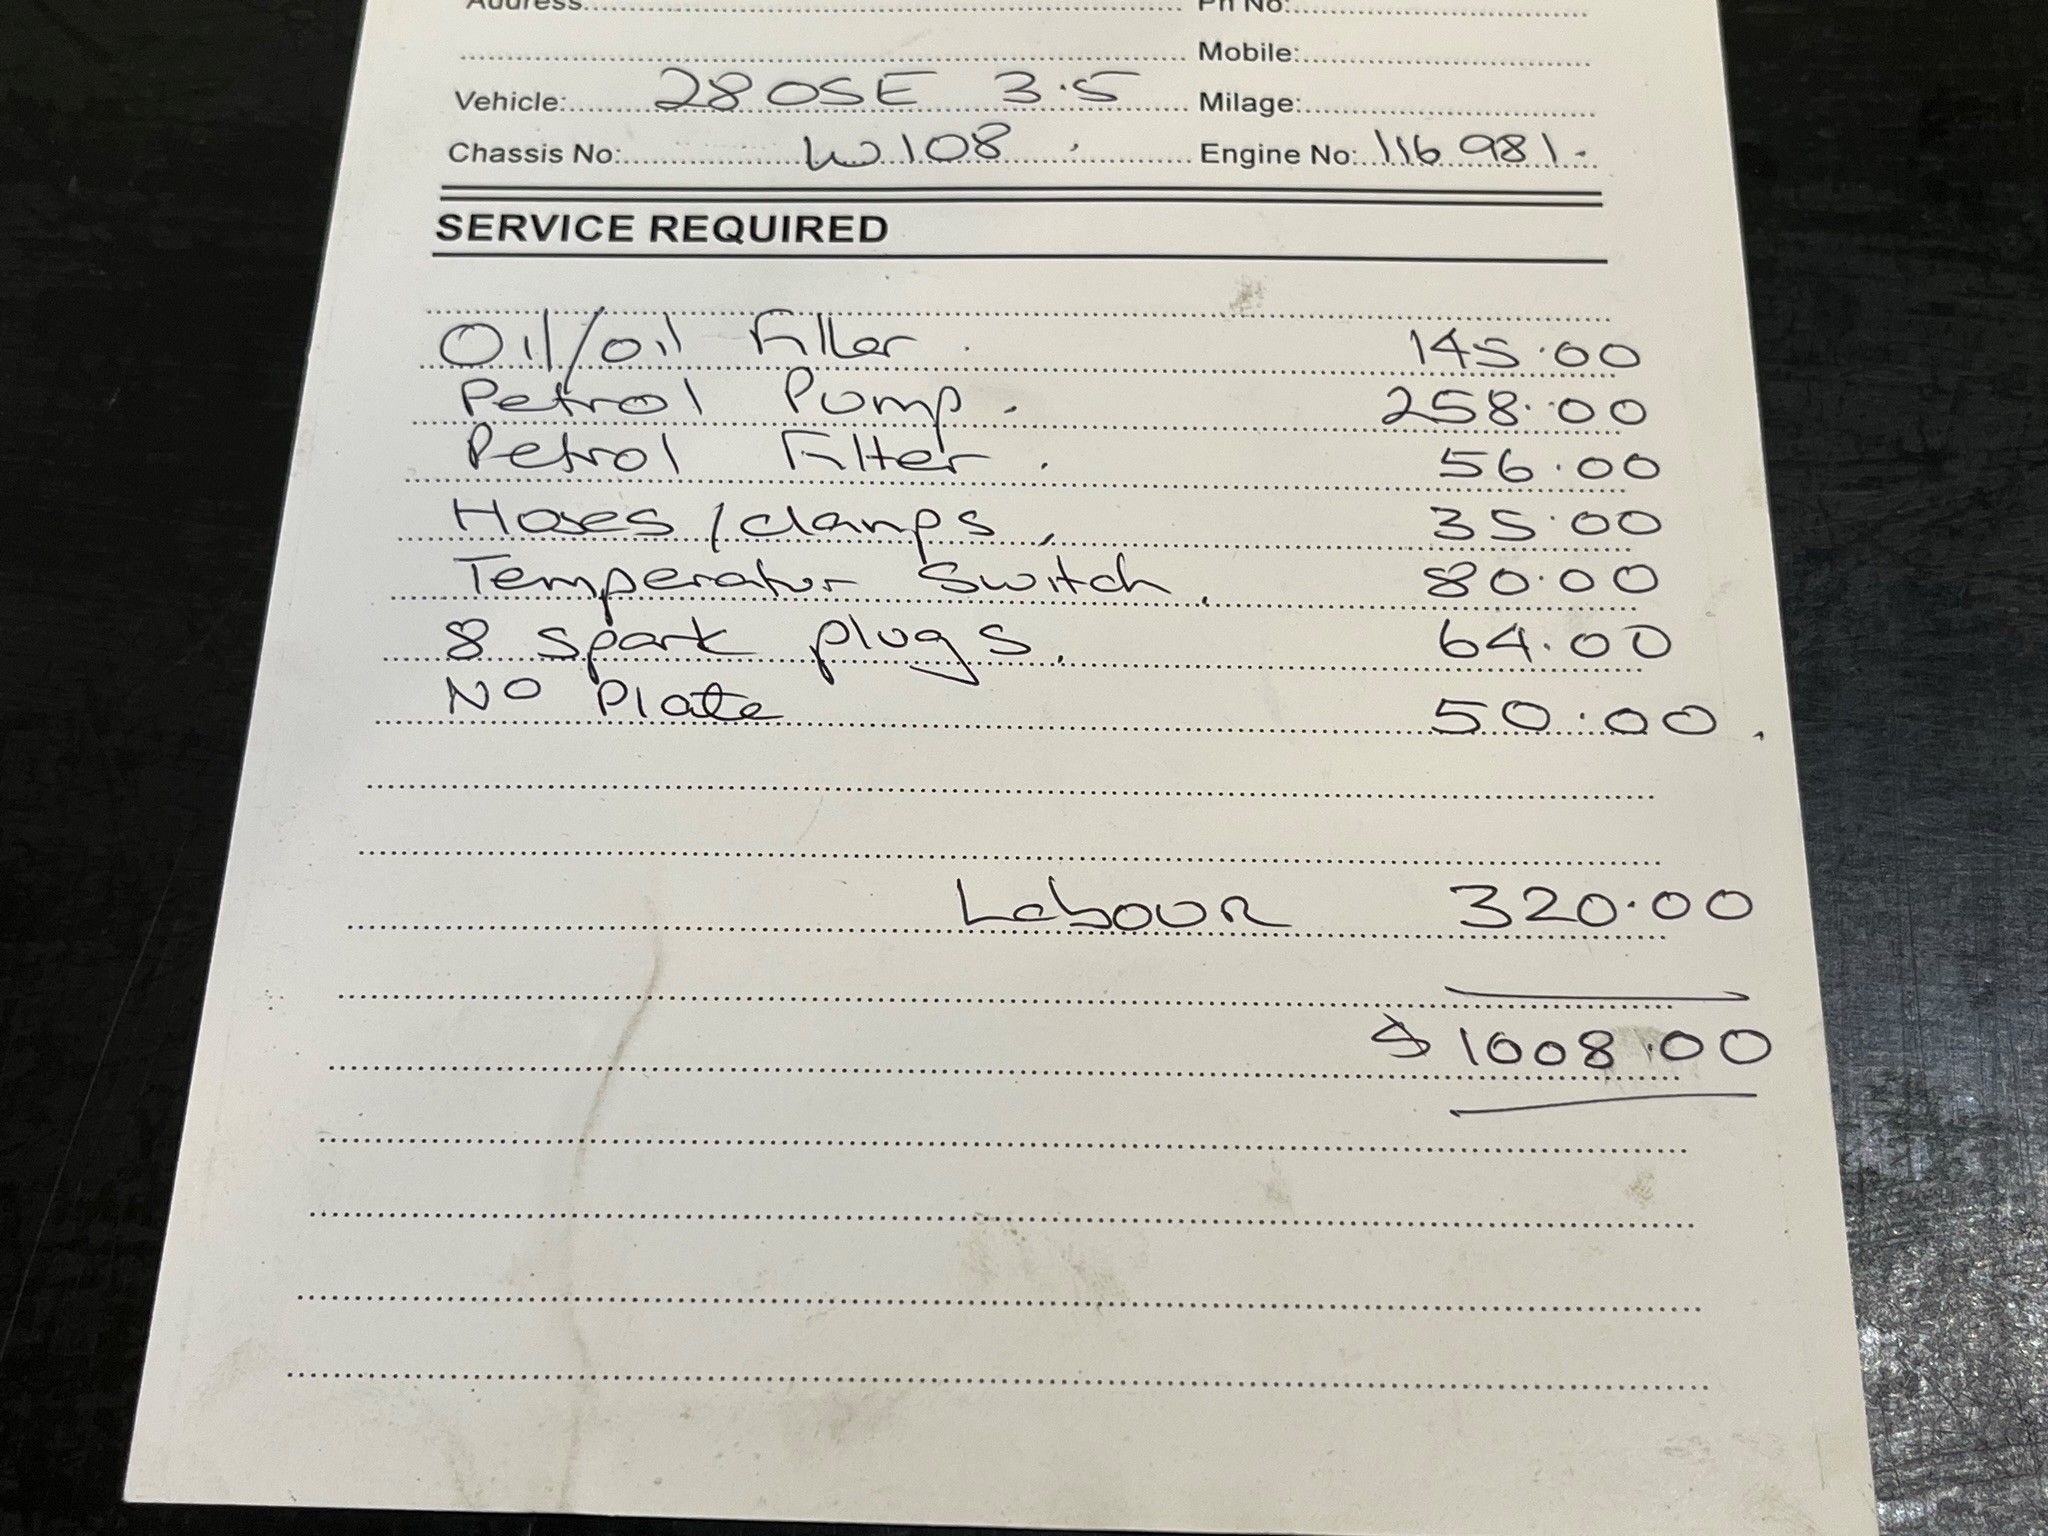 Address
Ph No:
Mobile:
Vehicle: 280SE 3.5 Milage:
Chassis No: W108 Engine No: 116 981.
SERVICE REQUIRED
Oil/oil Filter. 145.00
Petrol Pump. 258.00
Petrol Filter. 56.00
Hoses/clamps. 35.00
Temperatur Switch. 80.00
8 spark plugs. 64.00
No Plate 50.00.
Labour 320.00
$ 1008.00